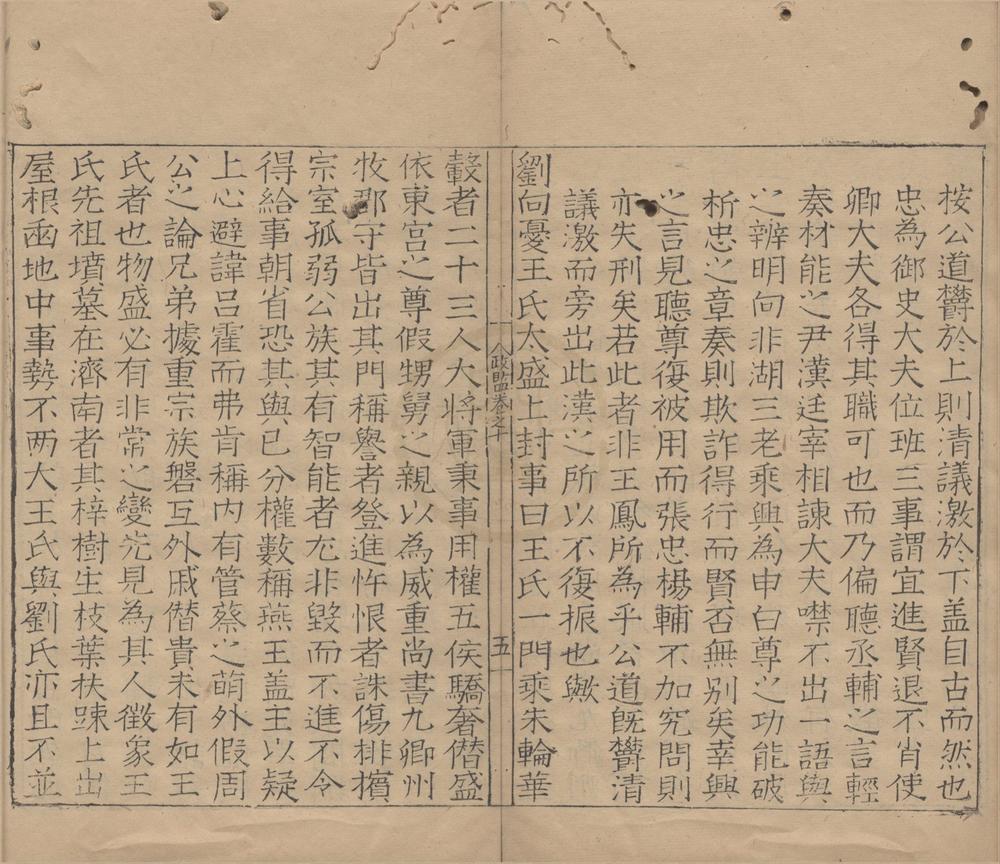 按公道欝於上則清議激於下盖自古而然也
忠為御史大夫位班三事謂宜進賢退不肖使
卿大夫各得其職可也而乃偏聽丞輔之言輕
奏材能之尹漢廷宰相諫大夫噤不出一語與
之辨明向非湖三老乘興為申白尊之功能破
析忠之章奏則欺詐得行而賢否無别矣幸興
之言見聽尊復被用而張忠楊輔不加究問則
亦失刑矣若此者非王鳳所為乎公道旣欝清
議激而旁出此漢之所以不復振也歟
劉向憂王氏太盛上封事曰王氏一門乘朱輪華
政監卷之十
五
轂者二十三人大將軍秉事用權五侯驕奢僣盛
依東宮之尊假甥舅之親以為威重尚書九卿州
牧郡守皆出其門稱譽者登進忤恨者誅傷排擯
宗室孤弱公族其有智能者尢非毀而不進不令
得給事朝省恐其與已分權數稱燕王盖主以疑
上心避諱吕霍而弗肯稱内有管蔡之萌外假周
公之論兄弟據重宗族磐互外戚僣貴未有如王
氏者也物盛必有非常之變先見為其人徵象王
氏先祖墳墓在濟南者其梓樹生枝葉扶踈上出
屋根臿地中事勢不两大王氏與劉氏亦且不並